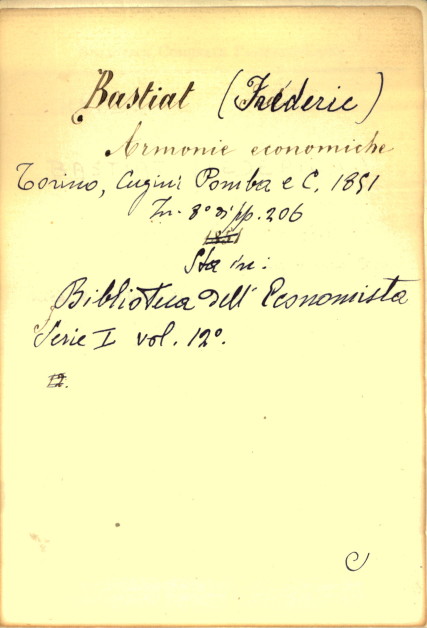 Bastiat (Fréderic)
Armonie economiche
Torino, Cugini Pomba e C. 1851
In. 8° di pp. 206
1851
Sta in:
Biblioteca dell' Economista
Serie I vol. 12°.
12.